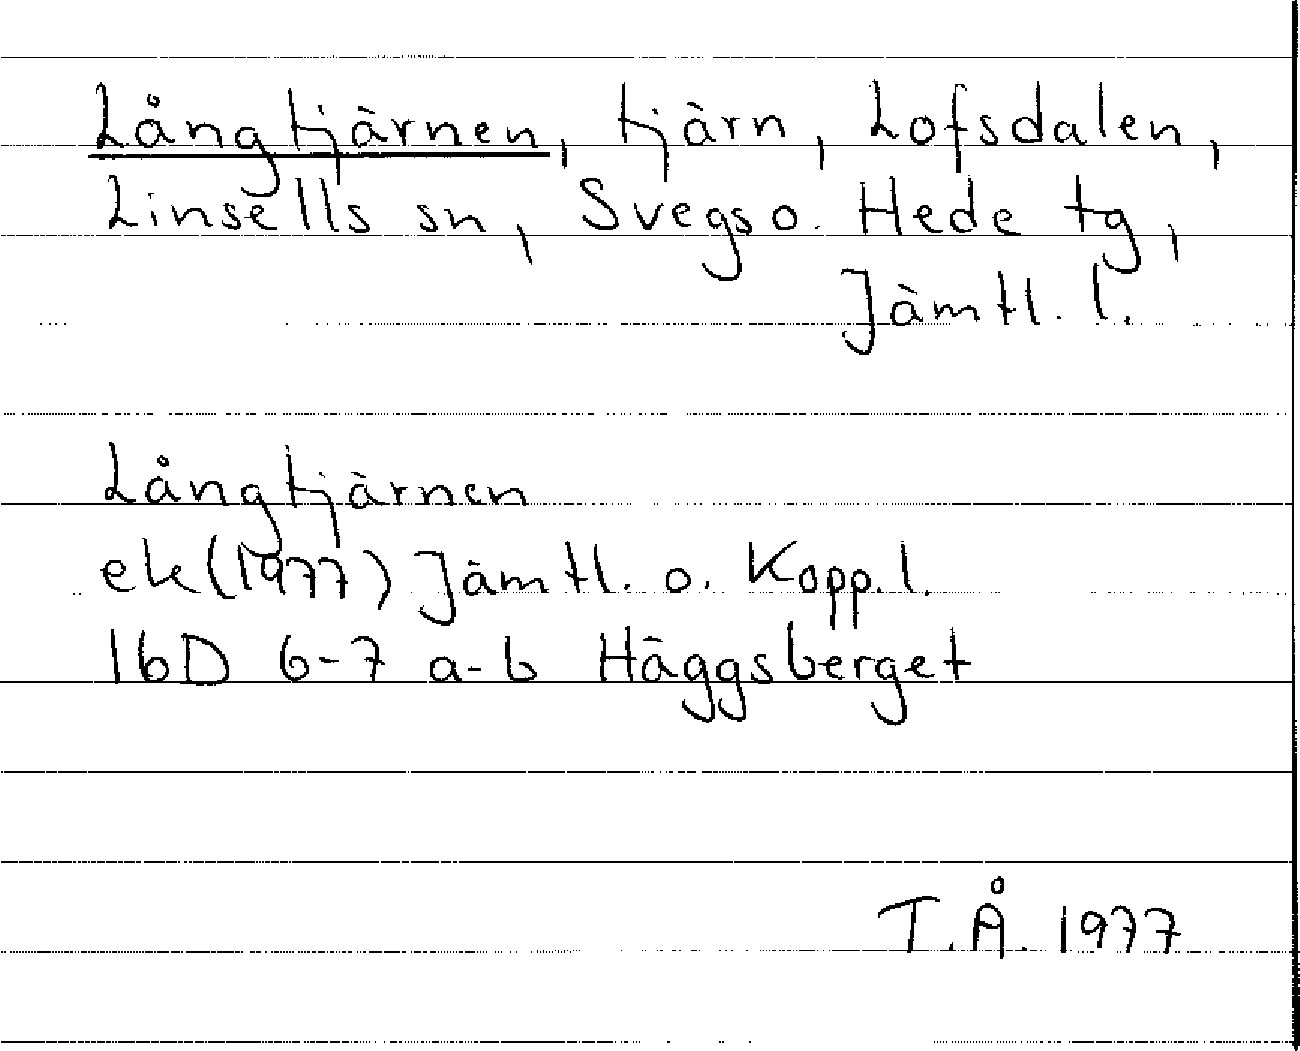 Långtjärnen, tjärn, Lofsdalen,
Linsells sn, Svegs o. Hede tg,
Jämtl. l.
Långtjärnen
ek (1977) Jämtl. o. Kopp. l.
16D 6-7 a-b Häggsberget
T.Å. 1977